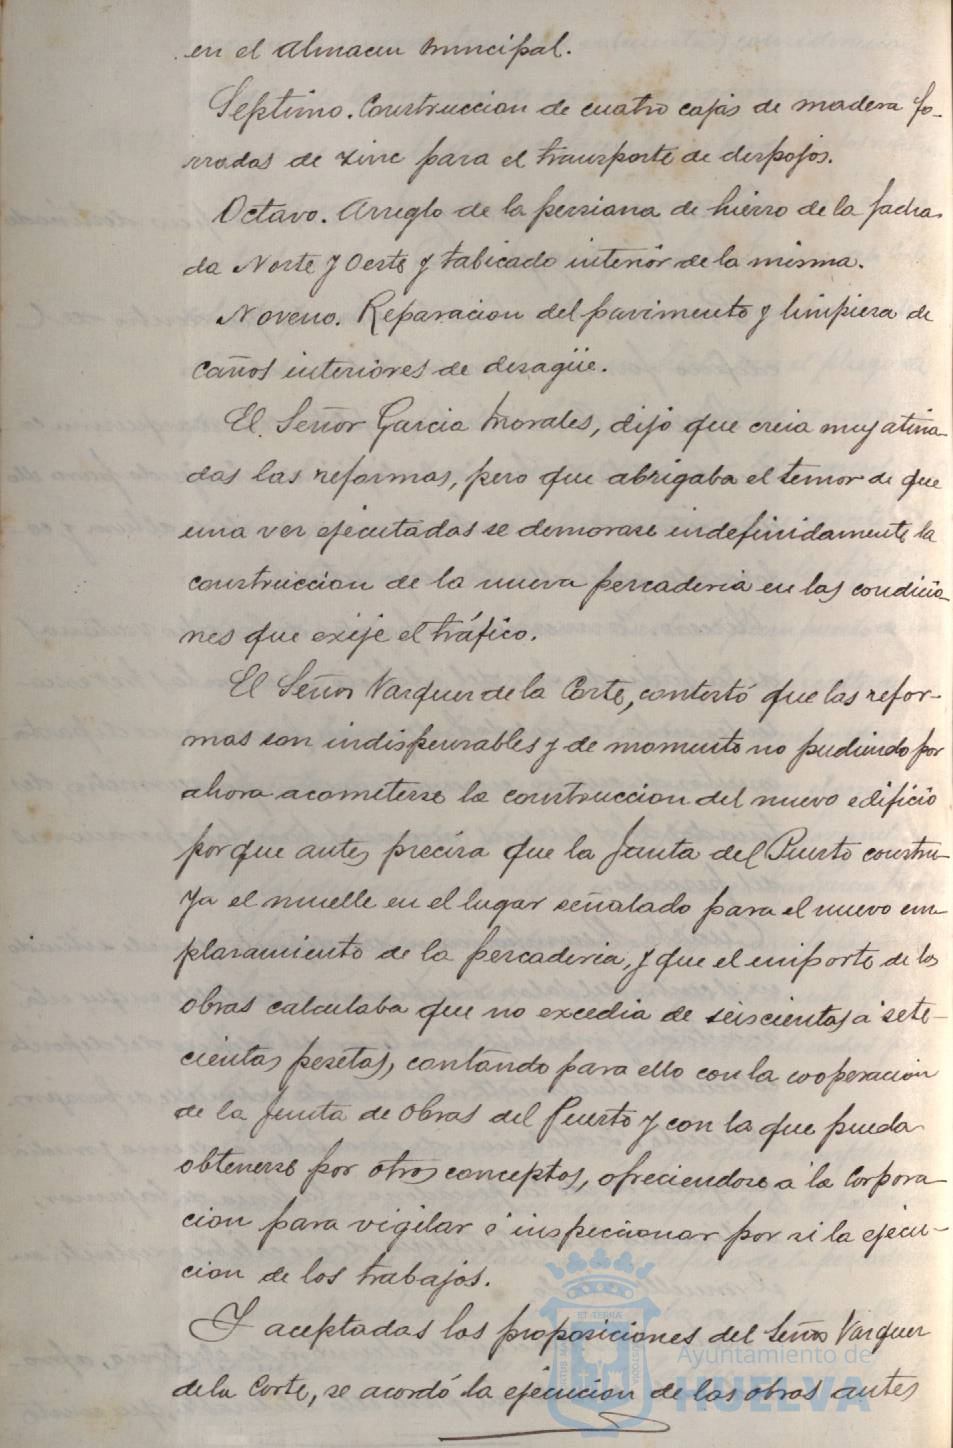 en el Almacen Muncipal.
Septimo. Construccion de cuatro cajas de madera fo-
rradas de zinc para el transporte de despojos.
Octavo. Arreglo de la persiana de hierro de la facha-
da Norte y Oeste y tabicado interior de la misma.
Noveno. Reparacion del pavimento y limpieza de
caños interiores de desagüe.
El Señor Garcia Morales, dijo que creia muy atina-
das las reformas, pero que abrigaba el temor de que
una vez ejecutadas se demorase indefinidamente la
construccion de la nueva pescaderia en las condicio-
nes que exije el tráfico.
El Señor Vazquez de la Corte, contestó que las refor-
mas son indispensables y de momento no pudiendo por
ahora acometerse la construccion del nuevo edificio
porque antes precisa que la Junta del Puerto constru-
ya el muelle en el lugar señalado para el nuevo em
plazamiento de la pescaderia, y que el importe de las
obras calculaba que no excedia de seiscientas á sete-
cientas pesetas, contando para ello con la cooperacion
de la Junta de Obras del Puerto y con la que pueda
obtenerse por otros conceptos, ofreciendose a la Corpora-
cion para vigilar é inspeccionar por si la ejecu-
cion de los trabajos.
Y aceptadas las proposiciones del Señor Vazquez
de la Corte, se acordó la ejecucion de las obras antes
Ayuntamiento de
HUELVA